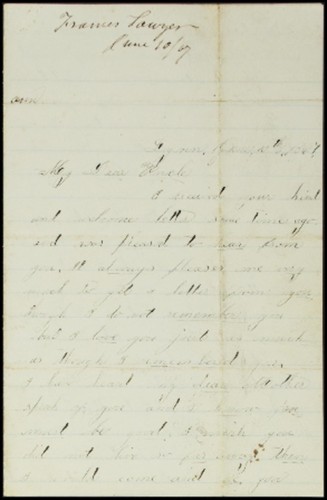 Frances Sawyer
June 10/67
ansd.
Lynn, June 10th, 1867.
My Dear Uncle
I receivd your kind
and welcome letter some time ago
and was pleasd to hear from
you. It always pleases me very
much to get a letter from you
though I do not remember you
but I love you just as much
as though I remembered you,
I have heard my dear Mother
speak of you and I know you
must be good, I wish you
did not live so far away then
I would come and see you